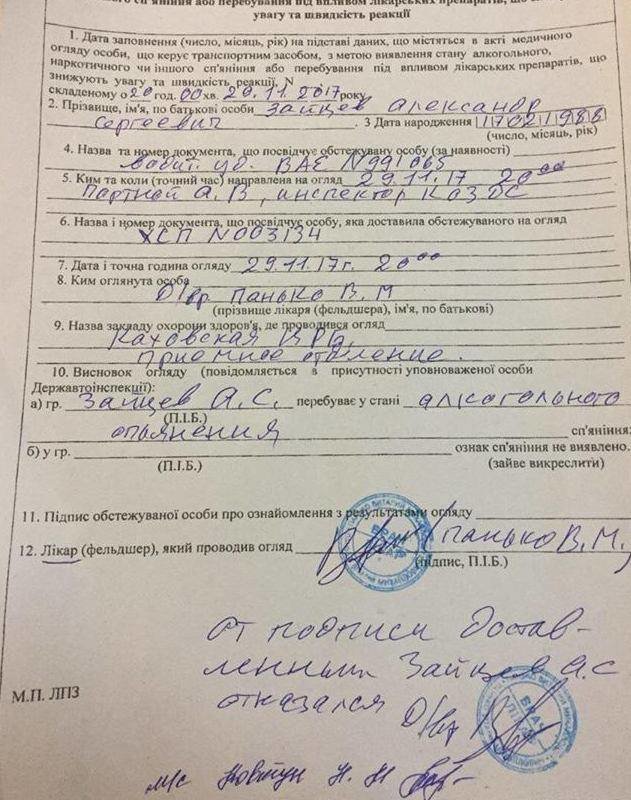 сп'яніння або перебування під впливом лікарських препаратів, що
увагу та швидкість реакції
1. Дата заповнення (число, місяць, рік) на підставі даних, що містяться в акті медичного
огляду особи, що керує транспортним засобом, з метою виявлення стану алкогольного,
наркотичного чи іншого сп'яніння або перебування під впливом лікарських препаратів, що
знижують увагу та швидкість реакції, N
складеному о 20 год. 00 хв. 29.11.2017 року
2. Прізвище, ім'я, по батькові особи Зайцев Александр
Сергеевич . 3 Дата народження 17021988
(число, місяць, рік)
4. Назва та номер документа, що посвідчує обстежувану особу (за наявності)
водит. уд. ВАЕ N991065
5. Ким та коли (точний час) направлена на огляд 29.11.17 20 00
Портной А.В, инспектор
6. Назва і номер документа, що посвідчує особу, яка доставила обстежуваного на огляд
ХСП N003134
7. Дата і точна година огляду 29.11.17г. 20 00
8. Ким оглянута особа
Панько В.М
(прізвище лікаря (фельдшера), ім'я, по батькові)
9. Назва закладу охорони здоров'я, де проводився огляд
Каховская
приемное отделение.
10. Висновок огляду (повідомляється в присутності уповноваженої особи
Державтоінспекції):
а) гр. Зайцев А.С. перебуває у стані алкогольного
(П.І.Б.)
опьянения сп'яніння;
б) у гр. ознак сп'яніння не виявлено.
(П.І.Б.) (зайве викреслити)
11. Підпис обстежуваної особи про ознайомлення з результатами огляду
12. Лікар (фельдшер), який проводив огляд Панько В.М.
(підпис, П.І.Б.)
от подписи достав-
ленный Зайцев А.С
отказался
М.П. ЛПЗ
м/с Ковтун Н. Н